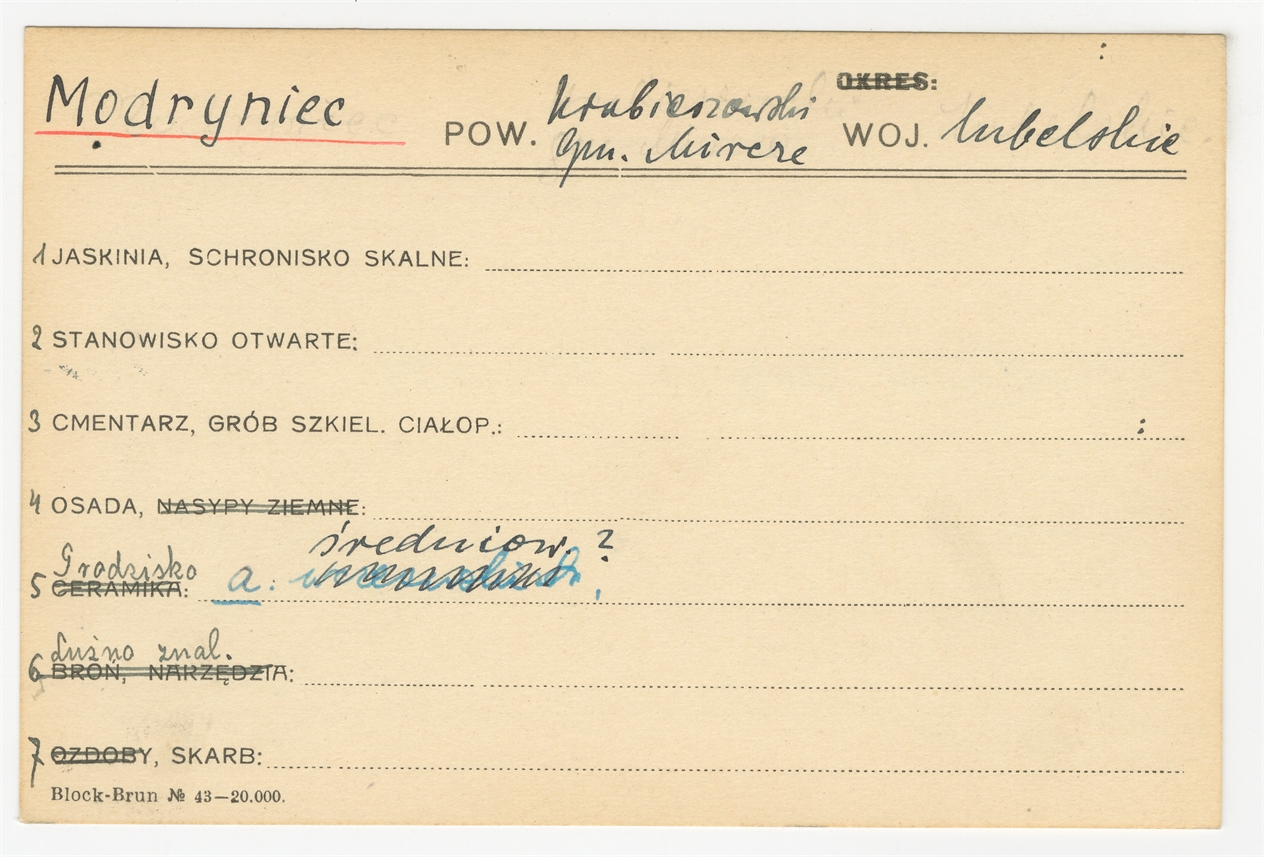 Modryniec
OKRES:
POW. Hrubieszowski
gm. Mircze
WOJ. lubelskie
1 JASKINIA, SCHRONISKO SKALNE:
2 STANOWISKO OTWARTE:
3 CMENTARZ, GRÓB SZKIEL. CIAŁOP.:
4 OSADA, NASYPY ZIEMNE:
średniow. ?
Grodzisko
5 CERAMIKA: a:
Luźno znal.
6 BROŃ, NARZĘDZIA:
7 OZDOBY, SKARB:
Block-Brun № 43—20.000.